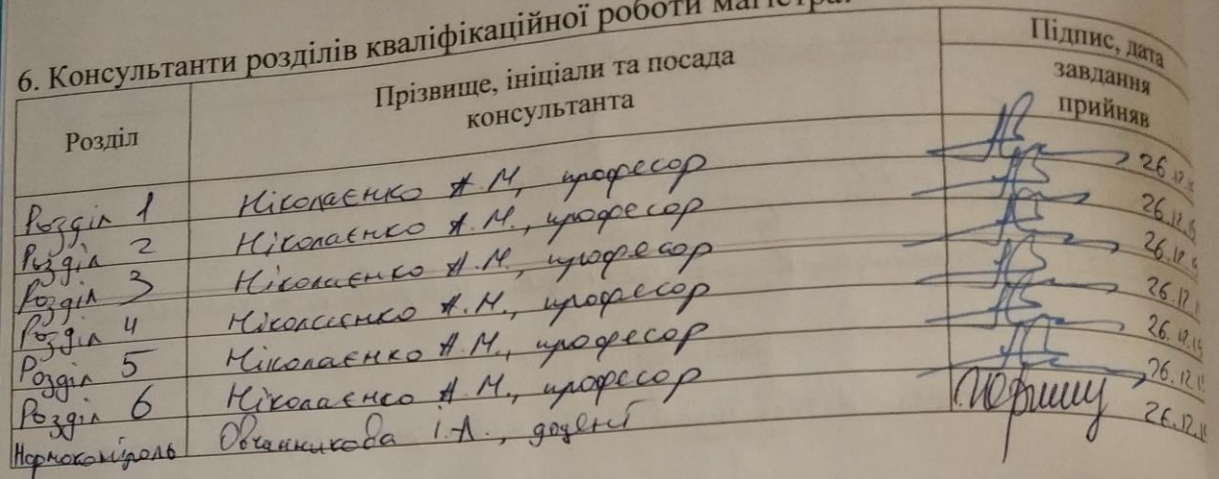 6. Консультанти розділів кваліфікаційної роботи магістра:
Розділ
Прізвище, ініціали та посада
консультанта
Підпис, дата
завдання
прийняв
Розділ 1 Ніколаєнко А.М, професор 26.12.
Розділ 2 Ніколаєнко А.М., професор 26.12.
Розділ 3 Ніколаєнко А.М., професор 26.12.
Розділ 4 Ніколаєнко А.М., професор 26.12.
Розділ 5 Ніколаєнко А.М., професор 26.12.19
Розділ 6 Ніколаєнко А.М., професор 26.12.
Нормоконтроль Овчинникова І.А., доцент 26.12.